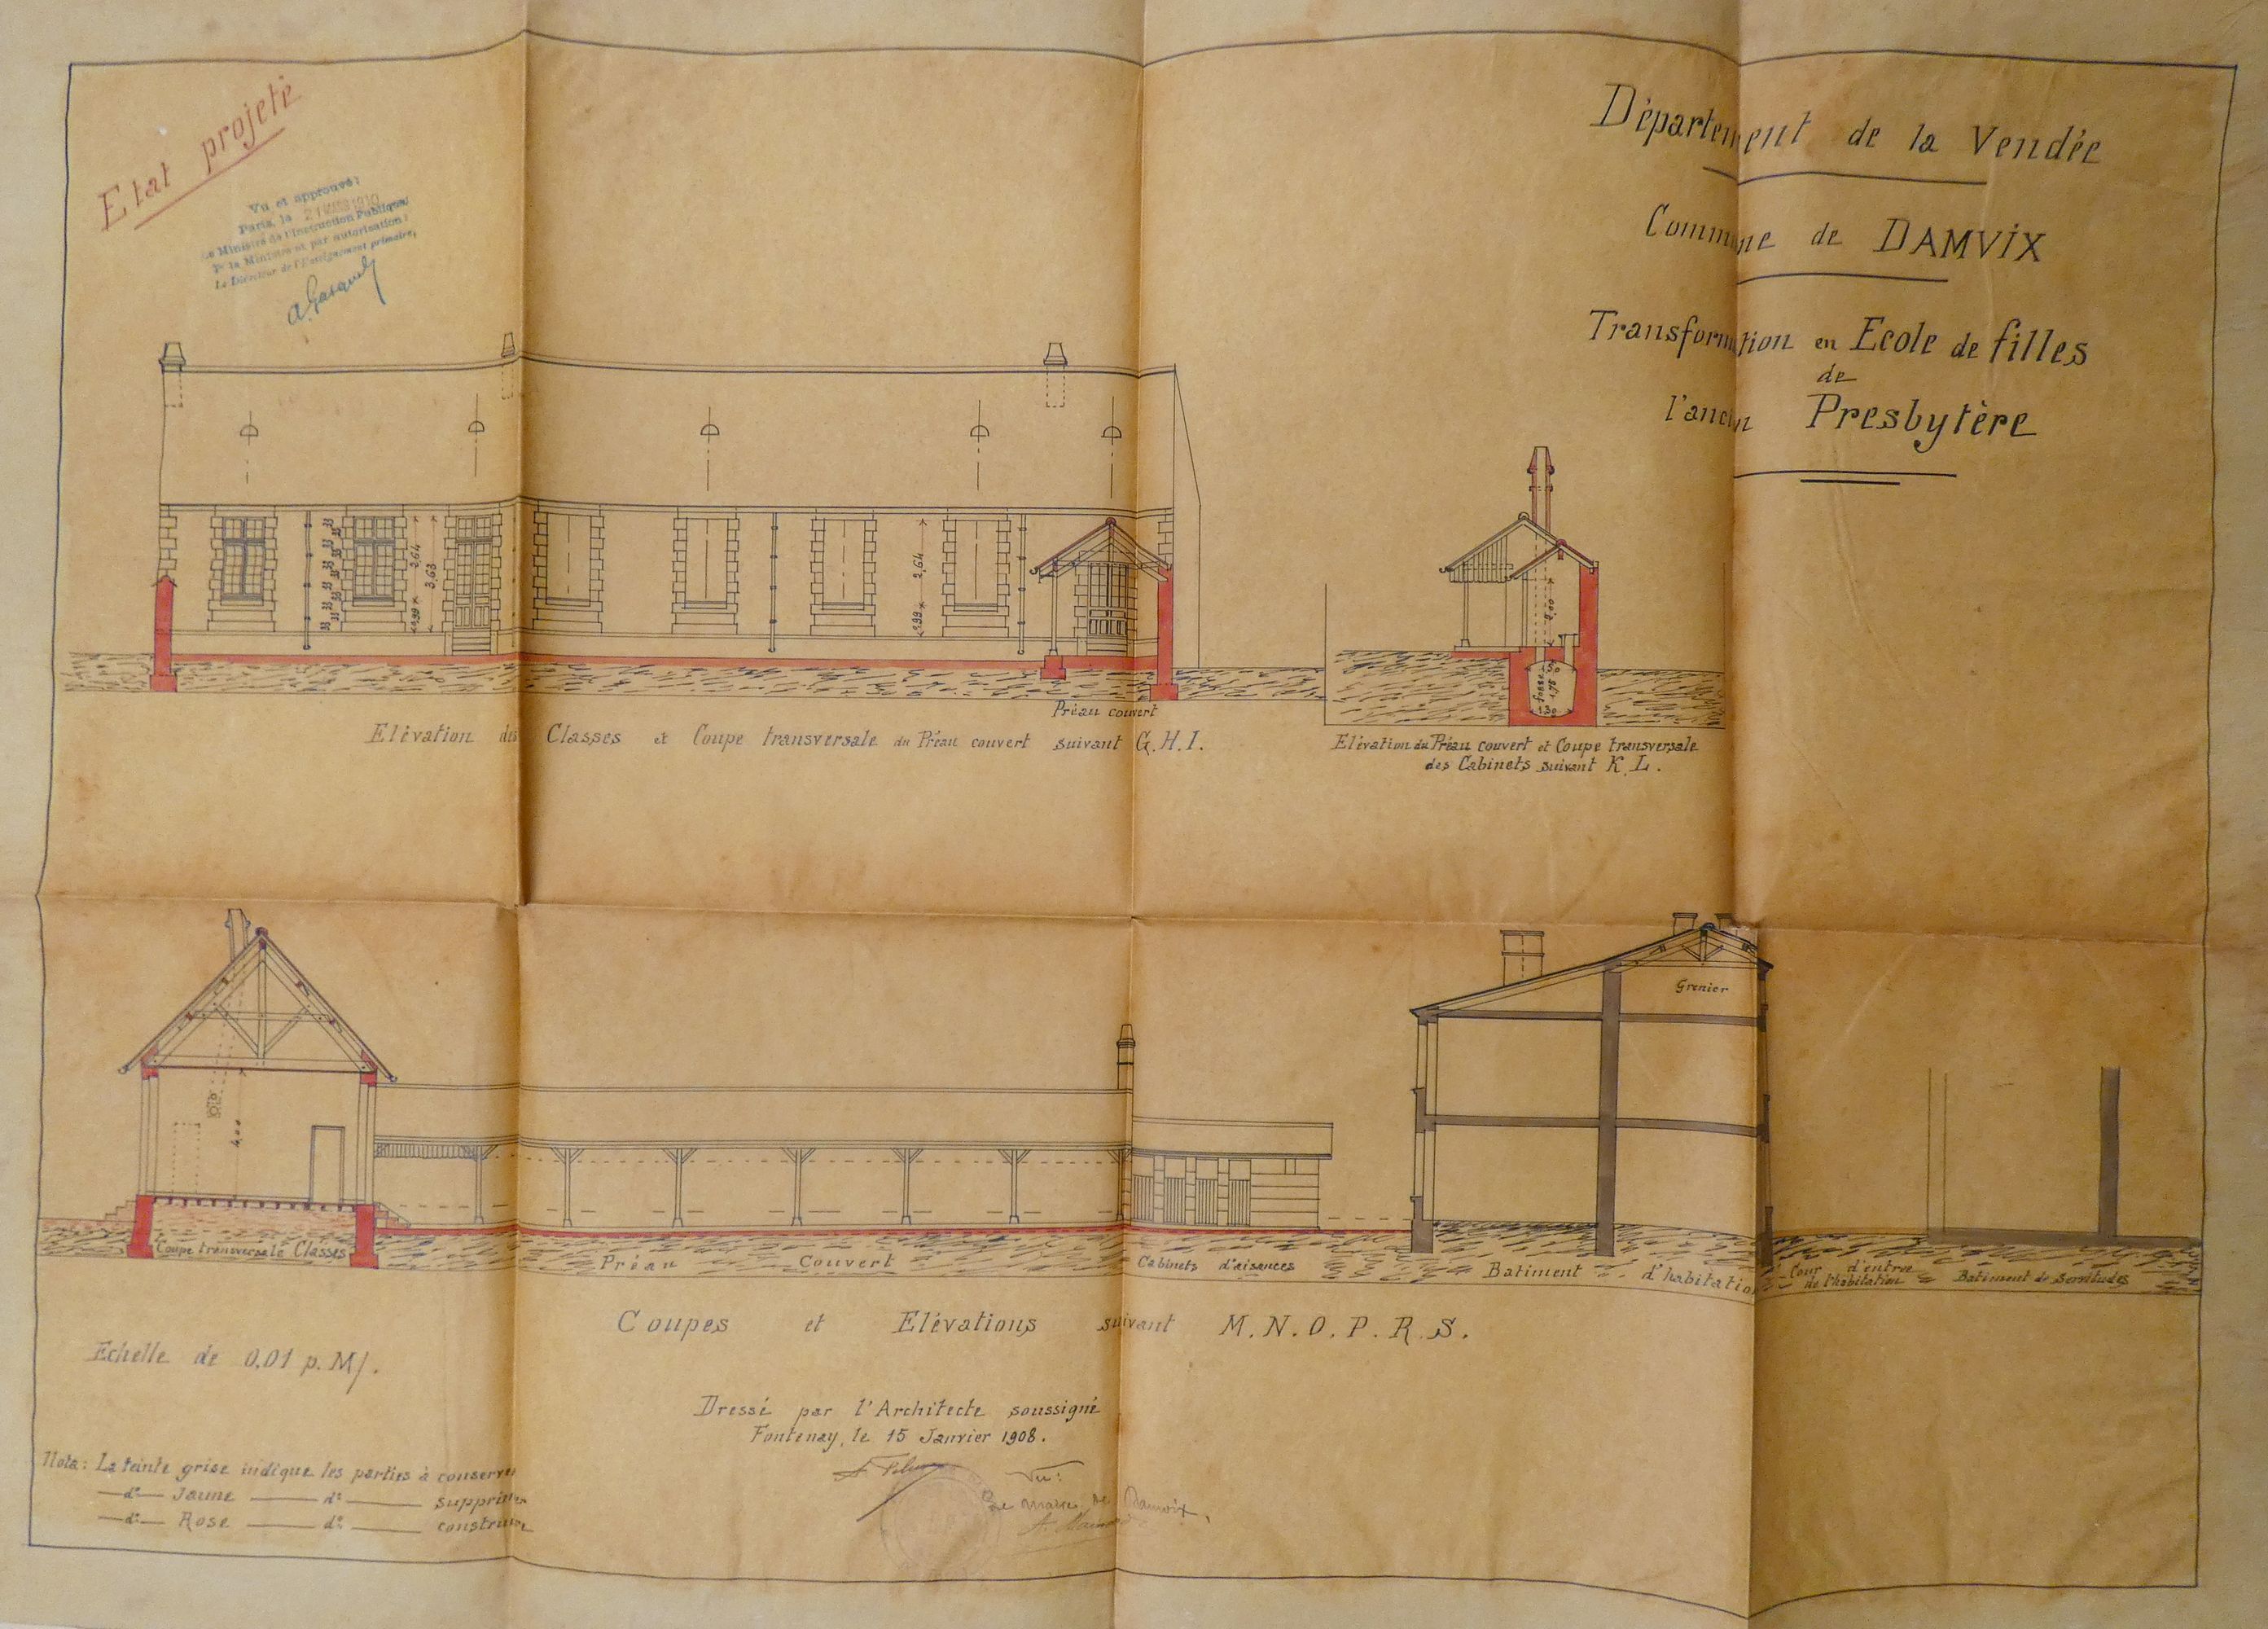 Etat projeté
Vu et approuvé:
Paris, le 21 MARS 1910
Le Ministre de l'Instruction Publique,
Pr le Ministre et par autorisation:
Le Directeur de l'Enseignement primaire,
Département de la Vendée
Commune de DAMVIX
Transformation en Ecole de filles
de
l'ancien Presbytère
33 33 33 33 33 33 33 33
2,64
3,63
0,99
2,64
0,99
Préau couvert
Elévation des Classes et Coupe transversale du Préau couvert suivant G.H.I.
2,00
fosse
1,75
1,30
Elévation du Préau couvert et Coupe transversale
des Cabinets suivant K.L.
4,00
Grenier
Coupe transversale Classes
Préau Couvert
Cabinets d'aisances
Batiment d'habitation
Cour d'entrée
de l'habitation
Batiment de Servitudes
Coupes et Elévations suivant M.N.O.P.R.S.
Echelle de 0,01 p. M/.
Dressé par l'Architecte soussigné
Fontenay, le 15 Janvier 1908.
Vu:
Le Maire de Damvix,
Nota: La teinte grise indique les parties à conserver
—d°— Jaune —— d° —— supprimer
—d°— Rose —— d° —— construire